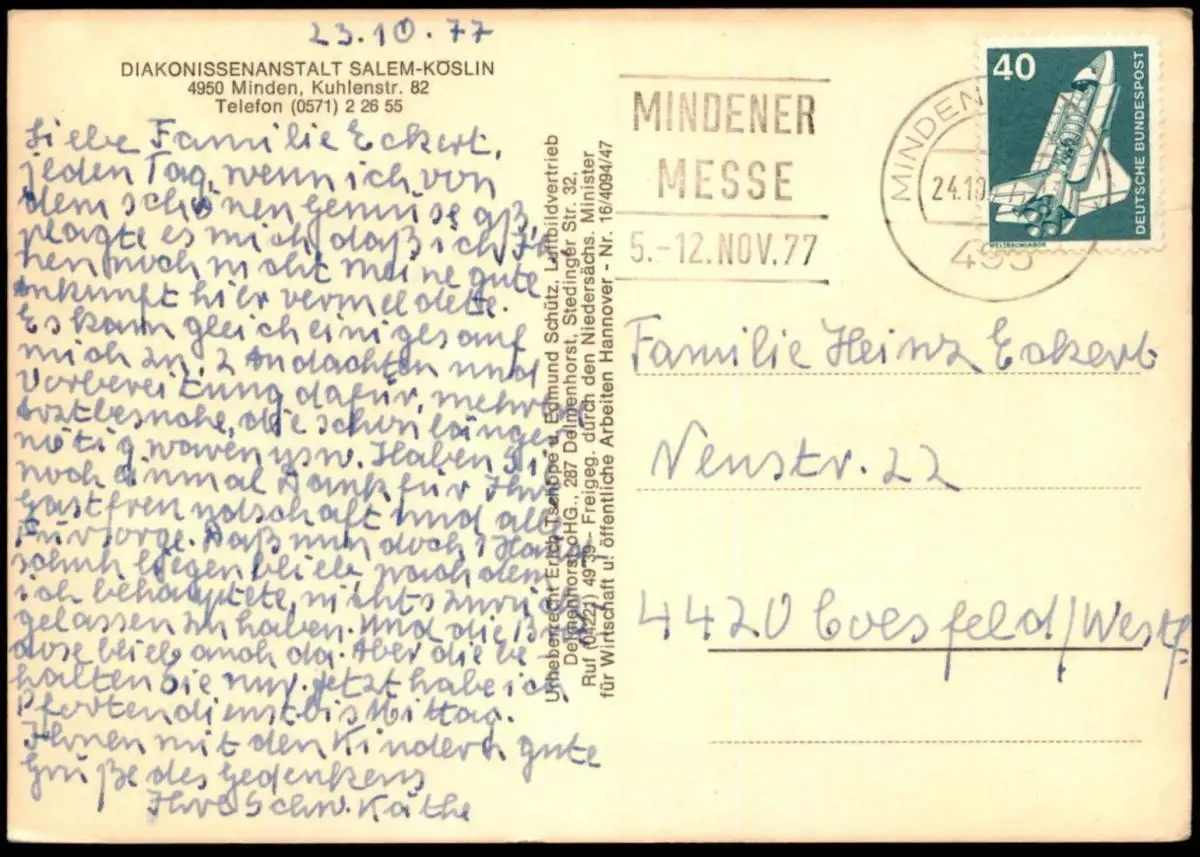 23.10.77
DIAKONISSENANSTALT SALEM-KÖSLIN
4950 Minden, Kuhlenstr. 82
Telefon (0571) 2 26 55
Liebe Familie Eckert,
jeden Tag, wenn ich von
dem schönen Gemüse aß,
plagte es mich, daß ich Ih-
nen noch nicht meine gute
Ankunft hier vermeldete.
Es kam gleich einiges auf
mich zu, 2 Andachten und
Vorbereitung dafür, mehrere
Arztbesuche, die schon länger
nötig waren usw. Haben Sie
noch einmal Dank für Ihre
Gastfreundschaft und alle
Fürsorge. Daß nun doch 1 Hand-
schuh liegen blieb, nachdem
ich behauptete, nichts zurück
gelassen zu haben. Und die
dose blieb auch da. Aber die be-
halten Sie nur. Jetzt habe ich
Pfortendienst bis Mittag.
Ihnen mit den Kindern gute
Grüße des Gedenkens
Ihre Schw. Käthe
Urheberrecht Erich Tschöpe u. Edmund Schütz, Luftbildvertrieb
Delmenhorst, oHG., 287 Delmenhorst, Stedinger Str. 32,
Ruf (04221) 49 39 - Freigeg. durch den Niedersächs. Minister
für Wirtschaft u. öffentliche Arbeiten Hannover - Nr. 16/4094/47
MINDENER
MESSE
5.-12.NOV.77
MINDEN
24.10
495
40
DEUTSCHE BUNDESPOST
WELTRAUMLABOR
Familie Heinz Eckert
Neustr. 22
4420 Coesfeld/Westf.